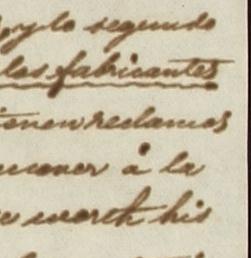 y lo segundo
los fabricantes
tienen reclamos
á la
worth his